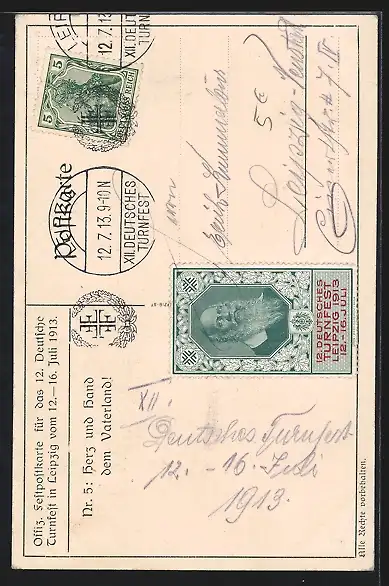 Offiz. Festpostkarte für das 12. Deutsche
Turnfest in Leipzig vom 12.–16. Juli 1913.
Nr. 5: Herz und Hand
dem Vaterland!
Postkarte
12.7.13.9-10N
XII.DEUTSCHES
TURNFEST
LEIP
12.7.13
XII.DEUTSCHES
TURNFEST
5
5
DEUTSCHES REICH
12. DEUTSCHES
TURNFEST
LEIPZIG 1913
12.-16. JULI
XII.
Deutsches Turnfest
12. - 16. Juli
1913.
5€
Leipzig-
Alle Rechte vorbehalten.